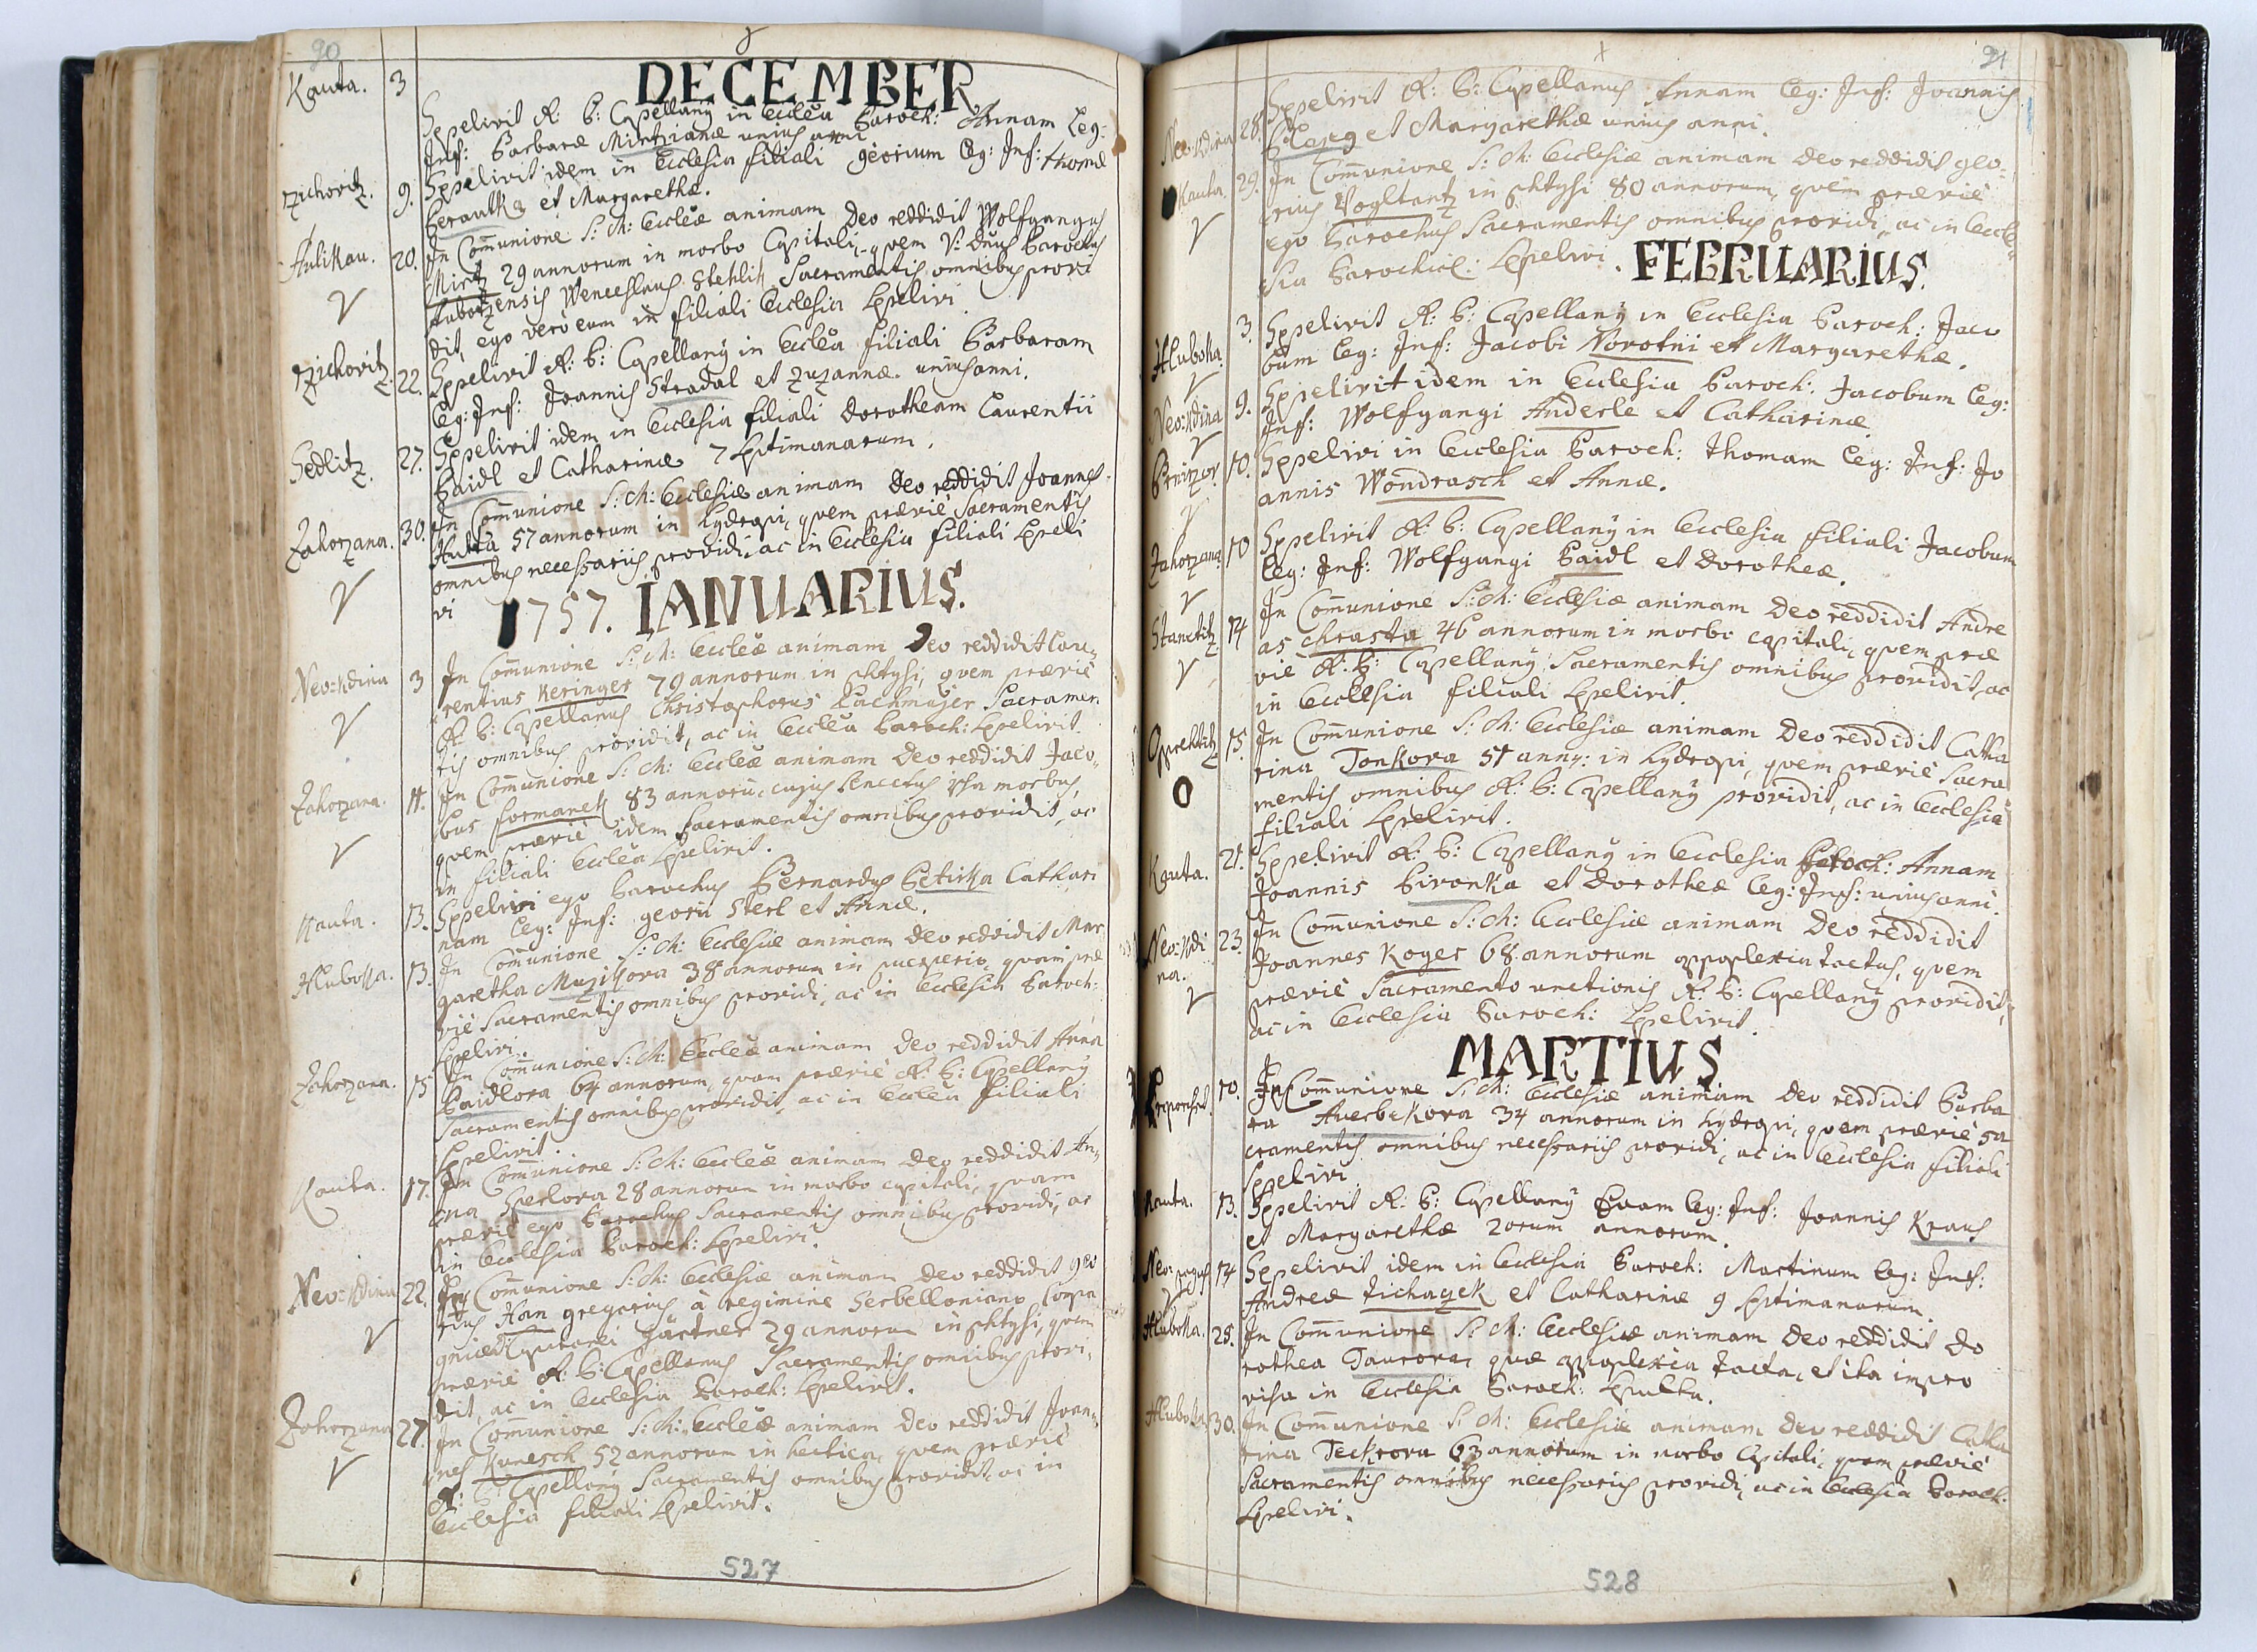 90
DECEMBER
Kauta. 3 Sepelivit R: P: Capellanus in Ecclea Paroch: Annam Leg:
Inf: Barbaræ Mintzianæ unius anni
Czichovitz. 9. Sepelivit idem in Ecclesia filiali georium Leg: Inf: thomæ
Berautka et Margarethæ.
Aulikau. 20. In Communione S: M: Eccleæ animam Deo reddidit Wolfgangus
Mintz 29 annorum in morbo Capitali, quem V: Dnus Parochus
Wenceslaus Stehlik Sacramentis omnibus provi
dit, ego vero eum in filiali Ecclesia sepelivi
Czichovitz. 22. Sepelivit R: P: Capellany in Ecclea filiali Barbaram
Leg: Inf: Joannis Stradal et Zuzannæ unius anni.
Sedlitz. 27. Sepelivit idem in Ecclesia filiali Dorotheam Laurentii
Paidl et Catharinæ 7 septimanarum.
Zahorzana. 30. In Communione S: M: Ecclesiæ animam Deo reddidit Joannes
57 annorum in hydropi, quem prævie Sacramentis
omnibus necessariis providi, ac in Ecclesia filiali sepeli
vi
1757. IANUARIUS.
Neo=Kdina 3 In Communione S: M: Eccleæ animam Deo reddidit Lau„
rentius Keringer 79 annorum in phtysi, quem prævie
R: P: Capellanus Christophorus Lachmajer Sacramen
tis omnibus providit, ac in Ecclea Paroch: sepelivit.
Zahorzana. 11. In Communione S: M: Eccleæ animam Deo reddidit Jaco„
bus formanek 83 annorū, cujus senectus ipsa morbus,
quem prævie idem Sacramentis omnibus providit, ac
in filiali Ecclea sepelivit.
Kauta. 13. Sepelivi ego Parochus Bernardus Petirka Cathari
nam Leg: Inf: georii Sterl et Annæ.
Hluboka. 13. In Communione S: M: Ecclesiæ animam Deo reddidit Mar
garetha Muzikova 38 annorum in puerperio, quam præ
vie Sacramentis omnibus providi, ac in Ecclesia Paroch:
sepelivi.
Zahorzana. 15 In Communione S: M: Eccleæ animam Deo reddidit Anna
Paidlova 64 annorum, quam prævie R: P: Capellany
Sacramentis omnibus providit, ac in Ecclea filiali
sepelivit.
Kauta. 17. In Communione S: M: Eccleæ animam Deo reddidit An„
na Sperlova 28 annorum in morbo capitali, quam
prævie ego Parochus Sacramentis omnibus providi, ac
in Ecclesia Paroch: sepelivi.
Neo=Kdina 22. In Communione S: M: Ecclesiæ animam Deo reddidit geo
rius Han gregarius à regimine Serbelloniano Compa
gniæ Capitanei gärtner 29 annorum in phtysi, quem
prævie R: P: Capellanus Sacramentis omnibus provi„
dit, ac in Ecclesia Paroch: sepelivit.
Zahorzana 27. In Communione S: M: Eccleæ animam Deo reddidit Joan„
nes Kunesch 52 annorum in hectica, quem prævie
R: P: Capellany Sacramentis omnibus providit, ac in
Ecclesia filiali sepelivit.
527
91
Neo=Kdina 28. Sepelivit R: P: Capellanus Annam Leg: Inf: Joannis
et Margarethæ unius anni.
Kauta. 29. In Communione S: M: Ecclesiæ animam Deo reddidit geo„
rius Vogltantz in phtysi 80 annorum, quem prævie
ego Parochus Sacramentis omnibus providi, ac in Eccle„
sia Parochial: sepelivi.
FEBRUARIUS.
Hluboka. 3. Sepelivit R: P: Capellany in Ecclesia Paroch: Jaco
bum Leg: Inf: Jacobi Novotni et Margarethæ.
Neo=Kdina 9. Sepelivit idem in Ecclesia Paroch: Jacobum Leg:
Inf: Wolfgangi Anderle et Catharinæ.
10. Sepelivi in Ecclesia Paroch: thomam Leg: Inf: Jo
annis Wondrasch et Annæ.
Zahorzana 10 Sepelivit R: P: Capellany in Ecclesia filiali Jacobum
Leg: Inf: Wolfgangi Paidl et Dorotheæ.
Stanetitz 14 In Communione S: M: Ecclesiæ animam Deo reddidit Andre
as chrasta 46 annorum in morbo capitali, quem præ
vie R: P: Capellany Sacramentis omnibus providit, ac
in Ecclesia filiali sepelivit.
Oprechtitz 15. In Communione S: M: Ecclesiæ animam Deo reddidit Catha
rina Tonkova 51 anny: in hydropi, quem prævie Sacra„
mentis omnibus R: P: Capellany providit, ac in Ecclesia
filiali sepelivit.
Kauta. 21. Sepelivit R: P: Capellany in Ecclesia Paroch: Annam
Joannis Pivonka et Dorotheæ Leg: Inf: unius anni.
Neo=Kdi
na. 23. In Communione S: M: Ecclesiæ animam Deo reddidit
Joannes Koger 68 annorum appoplexia tactus, quem
prævie Sacramento unctionis R: P: Capellany providit,
ac in Ecclesia Paroch: sepelivit.
MARTIUS
10. In Communione S: M: Ecclesiæ animam Deo reddidit Barba
ra Auerbekova 34 annorum in hydropi, quem prævie sa
cramentis omnibus necessariis providi, ac in Ecclesia filiali
sepelivi.
Kauta. 13. Sepelivit R: P: Capellany Evam Leg: Inf: Joannis Kraus
et Margarethæ 2orum annorum.
Neo= 14 Sepelivit idem in Ecclesia Paroch: Martinum Leg: Inf:
Andreæ tichaczek et Catharinæ 9 septimanarum.
Hluboka. 25. In Communione S: M: Ecclesiæ animam Deo reddidit Do
rothea Taurova, quæ appoplexia tacta, et ita impro
visa in Ecclesia Paroch: sepulta.
Hluboka. 30. In Communione S: M: Ecclesiæ animam Deo reddidit Catha
rina 63 annorum in morbo Capitali, quam prævie
Sacramentis omnibus necessariis providi, ac in Ecclesia Paroch.
sepelivi.
528